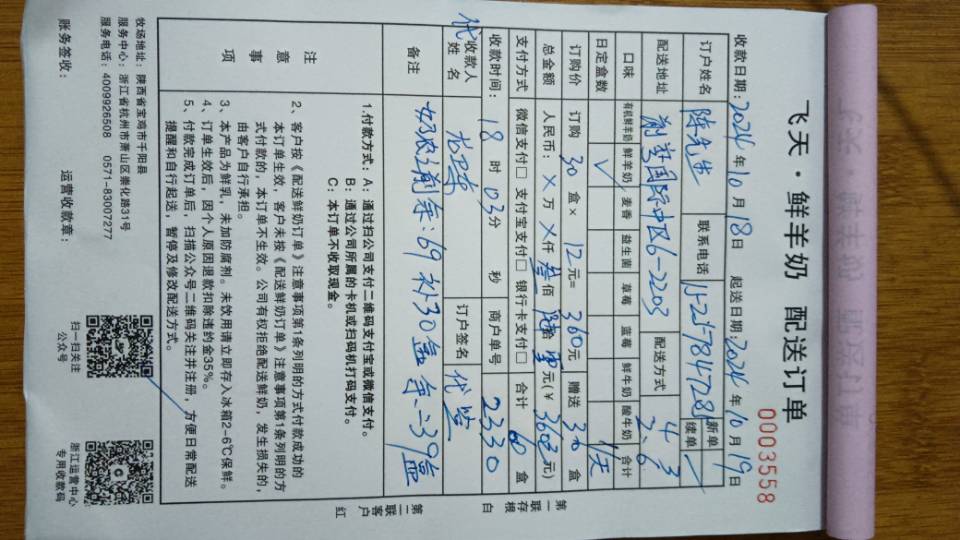 飞天·鲜羊奶 配送订单
0003558
收款日期:2024年10月18日 起送日期:2024年10月19日
订户姓名 陈先生 联系电话 15257847281 新单 续单 ✓
配送地址 国际中区6-2203 配送方式
口味 有机鲜羊奶 鲜羊奶 麦香 益生菌 草莓 蓝莓 鲜牛奶 酸牛奶 合计
日定盒数 ✓ 1/天
订购价 订购 30 盒× 12 元= 360 元 赠送 30 盒
总金额 人民币: × 万 × 仟 叁 佰 陆 拾 零 元(¥ 360 元)
支付方式 微信支付□ 支付宝支付□ 银行卡支付□ 合计 60 盒
收款时间: 18 时 03 分 秒 商户单号 2330
代 收款人姓名 订户签名 代签
备注 余:69 补30盒 余:39盒
注意事项
1.付款方式:A:通过扫公司支付二维码支付宝或微信支付。
B:通过公司所属的卡机或扫码机打码支付。
C:本订单不收取现金。
2、客户按《配送鲜奶订单》注意事项第1条列明的方式付款成功的
本订单生效,客户未按《配送鲜奶订单》注意事项第1条列明的方
式付款的,本订单不生效。公司有权拒绝配送鲜奶,发生损失的,
由客户自行承担。
3、本产品为鲜乳,未加防腐剂。未饮用请立即存入冰箱2-6℃保鲜。
4、订单生效后,因个人原因退款扣除违约金35%。
5、付款完成订单后,扫描公众号二维码关注并注册,方便日常配送
提醒和自行起送,暂停及修改配送方式。
牧场地址:陕西省宝鸡市千阳县
服务中心:浙江省杭州市萧山区崇化路31号
服务电话:4009926508 0571-83007277
账务签收: 运营收款章:
扫一扫关注
公众号
浙江运营中心
专用收款码
第一联存根 白
第二联客户 红